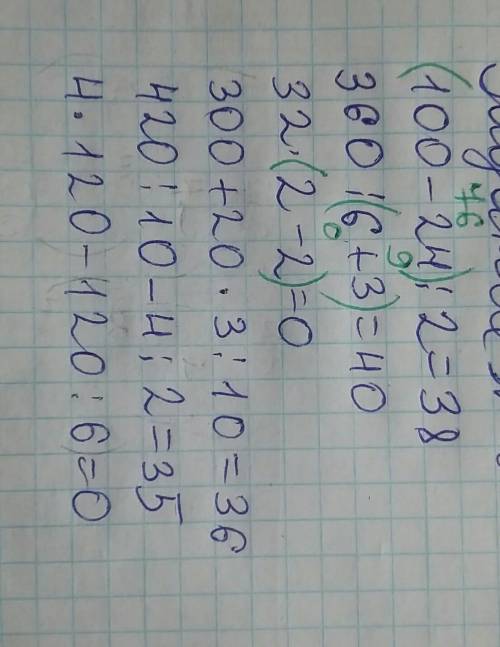 76
(100-24):2=38
9
360:(6+3)=40
0
32·(2-2)=0
300+20·3:10=36
420:10-4:2=35
4·120-120:6=0